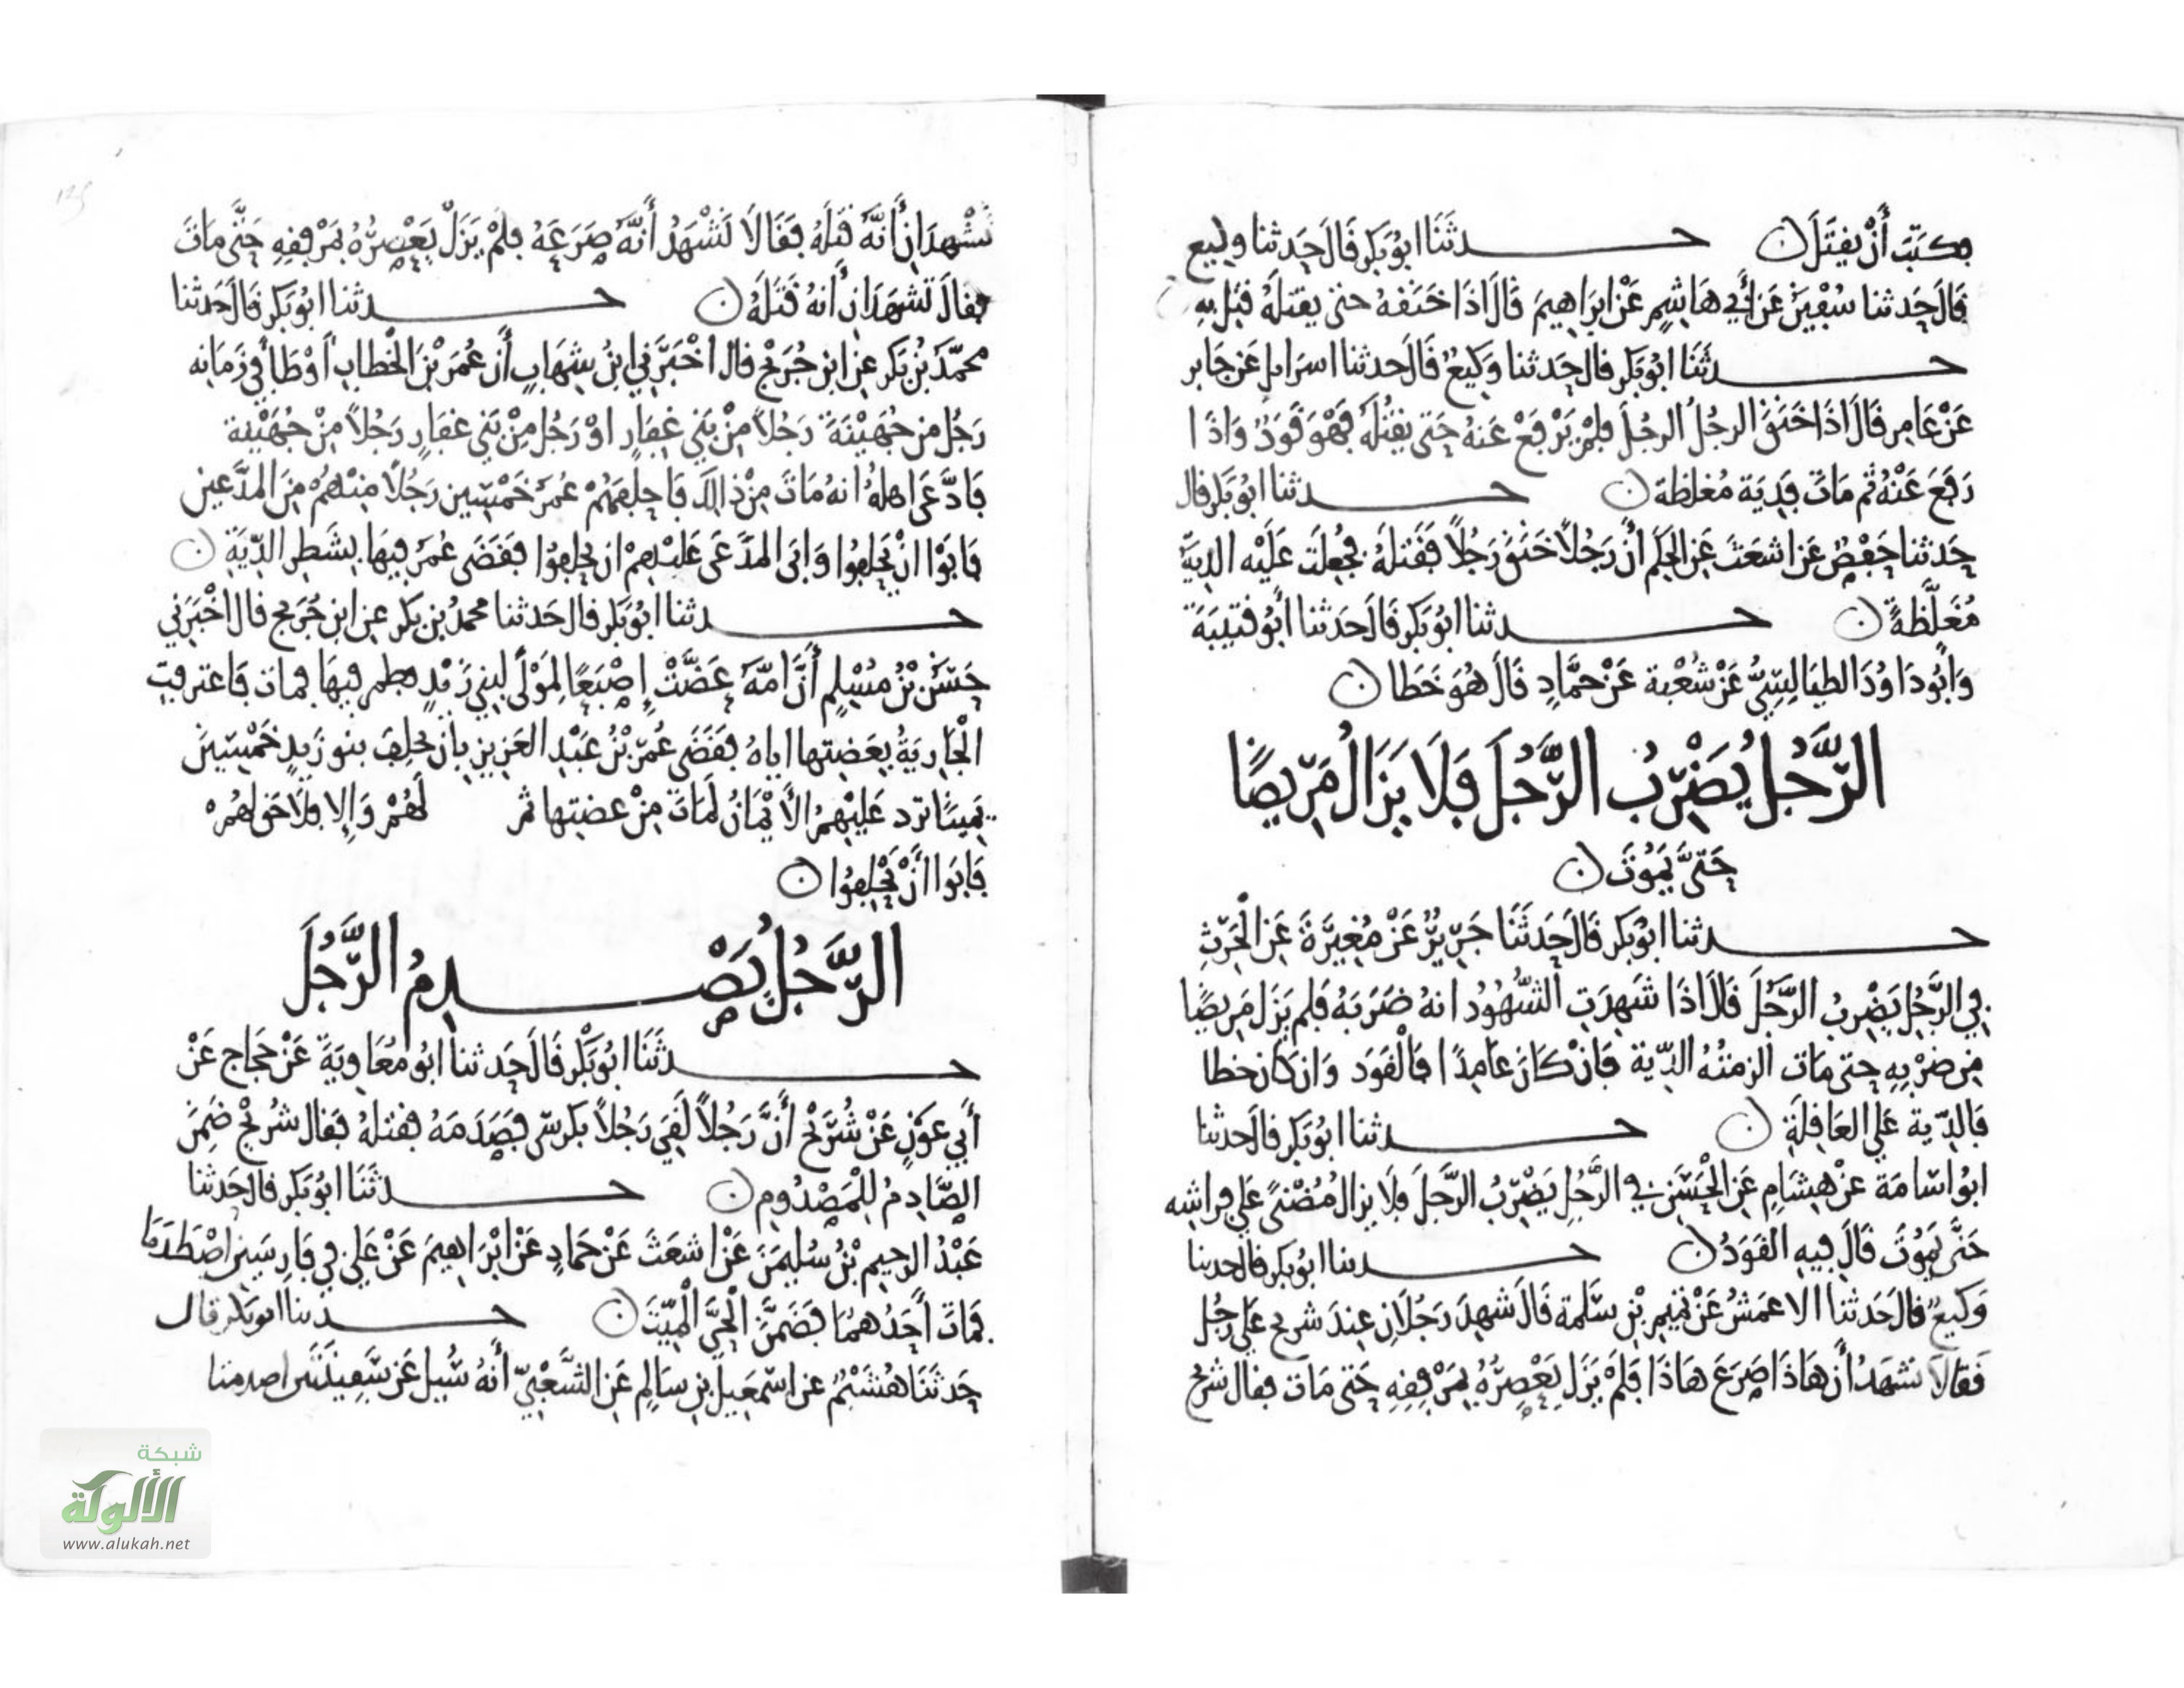 فكتب أن يقتل ن حدثنا ابو بكر قال حدثنا وكيع
قال حدثنا سفين عن أبي هاشم عن ابراهيم قال اذا خنقه حتى يقتله قتل به
حدثنا ابو بكر قال حدثنا وكيع قال حدثنا اسرايل عن جابر
عن عامر قال اذا خنق الرجل الرجل فلم يرفع عنه حتى يقتله فهو قود واذا
رفع عنه ثم مات فدية مغلظة ن حدثنا ابو بكر قال
حدثنا حفص عن اشعث عن الحكم أن رجلا خنق رجلا فقتله فجعلت عليه الدية
مغلظة ن حدثنا ابو بكر قال حدثنا أبو قتيبة
وأبو داود الطيالسي عن شعبة عن حماد قال هو خطا ن
الرجل يضرب الرجل فلا يزال مريضا
حتى يموت ن
حدثنا ابو بكر قال حدثنا جرير عن مغيرة عن الحرث
في الرجل يضرب الرجل قال اذا شهدت الشهود انه ضربه فلم يزل مريضا
من ضربه حتى مات الزمته الدية فان كان عامدا فالقود وان كان خطا
فالدية على العاقلة ن حدثنا ابو بكر قال حدثنا
ابو اسامة عن هشام عن الحسن في الرجل يضرب الرجل فلا يزال مضنى على فراشه
حتى يموت قال فيه القود ن حدثنا ابو بكر قال حدثنا
وكيع قال حدثنا الاعمش عن تميم بن سلمة قال شهد رجلان عند شريح على رجل
فقالا نشهد أن هاذا صرع هاذا فلم يزل يعصره بمرفقه حتى مات فقال شريح
تشهدان أنه قتله فقالا نشهد أنه صرعه فلم يزل يعصره بمرفقه حتى مات
فقال تشهدان أنه قتله ن حدثنا ابو بكر قال حدثنا
محمد بن بكر عن ابن جريج قال اخبرني ابن شهاب أن عمر بن الخطاب أوطا في زمانه
رجل من جهينة رجلا من بني غفار او رجل من بني غفار رجلا من جهينة
فادعى اهله انه مات من ذالك فاحلفهم عمر خمسين رجلا منهم من المدعين
فابوا ان يحلفوا وابى المدعى عليهم ان يحلفوا فقضى عمر فيها بشطر الدية ن
حدثنا ابو بكر قال حدثنا محمد بن بكر عن ابن جريج قال اخبرني
حسن بن مسلم أن أمة عضت إصبعا لمولى لبني زيد فطمر فيها فمات فاعترفت
الجارية بعضتها اياه فقضى عمر بن عبد العزيز بان يحلف بنو زيد خمسين
يمينا ترد عليهم الأيمان لمات من عضتها ثم لهم وإلا فلا حق لهم
فابوا أن يحلفوا ن
الرجل يصدم الرجل
حدثنا ابو بكر قال حدثنا ابو معاوية عن حجاج عن
أبي عون عن شريح أن رجلا لقي رجلا بكرسي فصدمه فقتله فقال شريح ضمن
الصادم للمصدوم ن حدثنا ابو بكر قال حدثنا
عبد الرحيم بن سليمن عن اشعث عن حماد عن ابراهيم عن علي في فارسين اصطدما
فمات أحدهما فضمن الحي الميت ن حدثنا ابو بكر قال
حدثنا هشيم عن اسمعيل بن سالم عن الشعبي أنه سيل عن سفينتين اصدمتا
شبكة
الألوكة
www.alukah.net